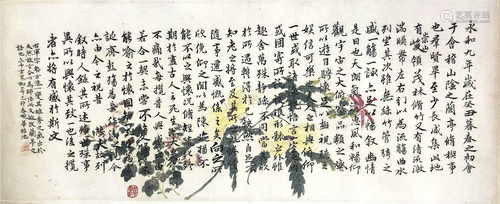 永和九年歲在癸丑暮春之初會
于會稽山陰之蘭亭脩稧事
也羣賢畢至少長咸集此地
有崇山峻領茂林脩竹又有清流激
湍暎帶左右引以為流觴曲水
列坐其次雖無絲竹管弦之
盛一觴一詠亦足以暢敘幽情
是日也天朗氣清惠風和暢仰
觀宇宙之大俯察品類之盛
所以遊目騁懷足以極視聽之
娛信可樂也夫人之相與俯仰
一世或取諸懷抱悟言一室之內
或因寄所託放浪形骸之外雖
趣舍萬殊靜躁不同當其欣
於所遇暫得於己快然自足不
知老之將至及其所之既惓情
隨事遷感慨係之矣向之所
欣俛仰之間以為陳迹猶不
能不以之興懷況脩短隨化終
期於盡古人云死生亦大矣豈
不痛哉每攬昔人興感之由
若合一契未嘗不臨文嗟悼不
能喻之於懷固知一死生為虛
誕齊彭殤為妄作後之視今
亦由今之視昔悲夫故列
敘時人錄其所述雖世殊事
異所以興懷其致一也後之攬
者亦將有感於斯文